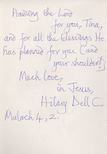 Praising the Lord
for you, Tina,
and for all the blessings He
has planned for you (and
your shoulder!)
Much love,
in Jesus,
Hilary Dell C.
Malachi 4, 2.